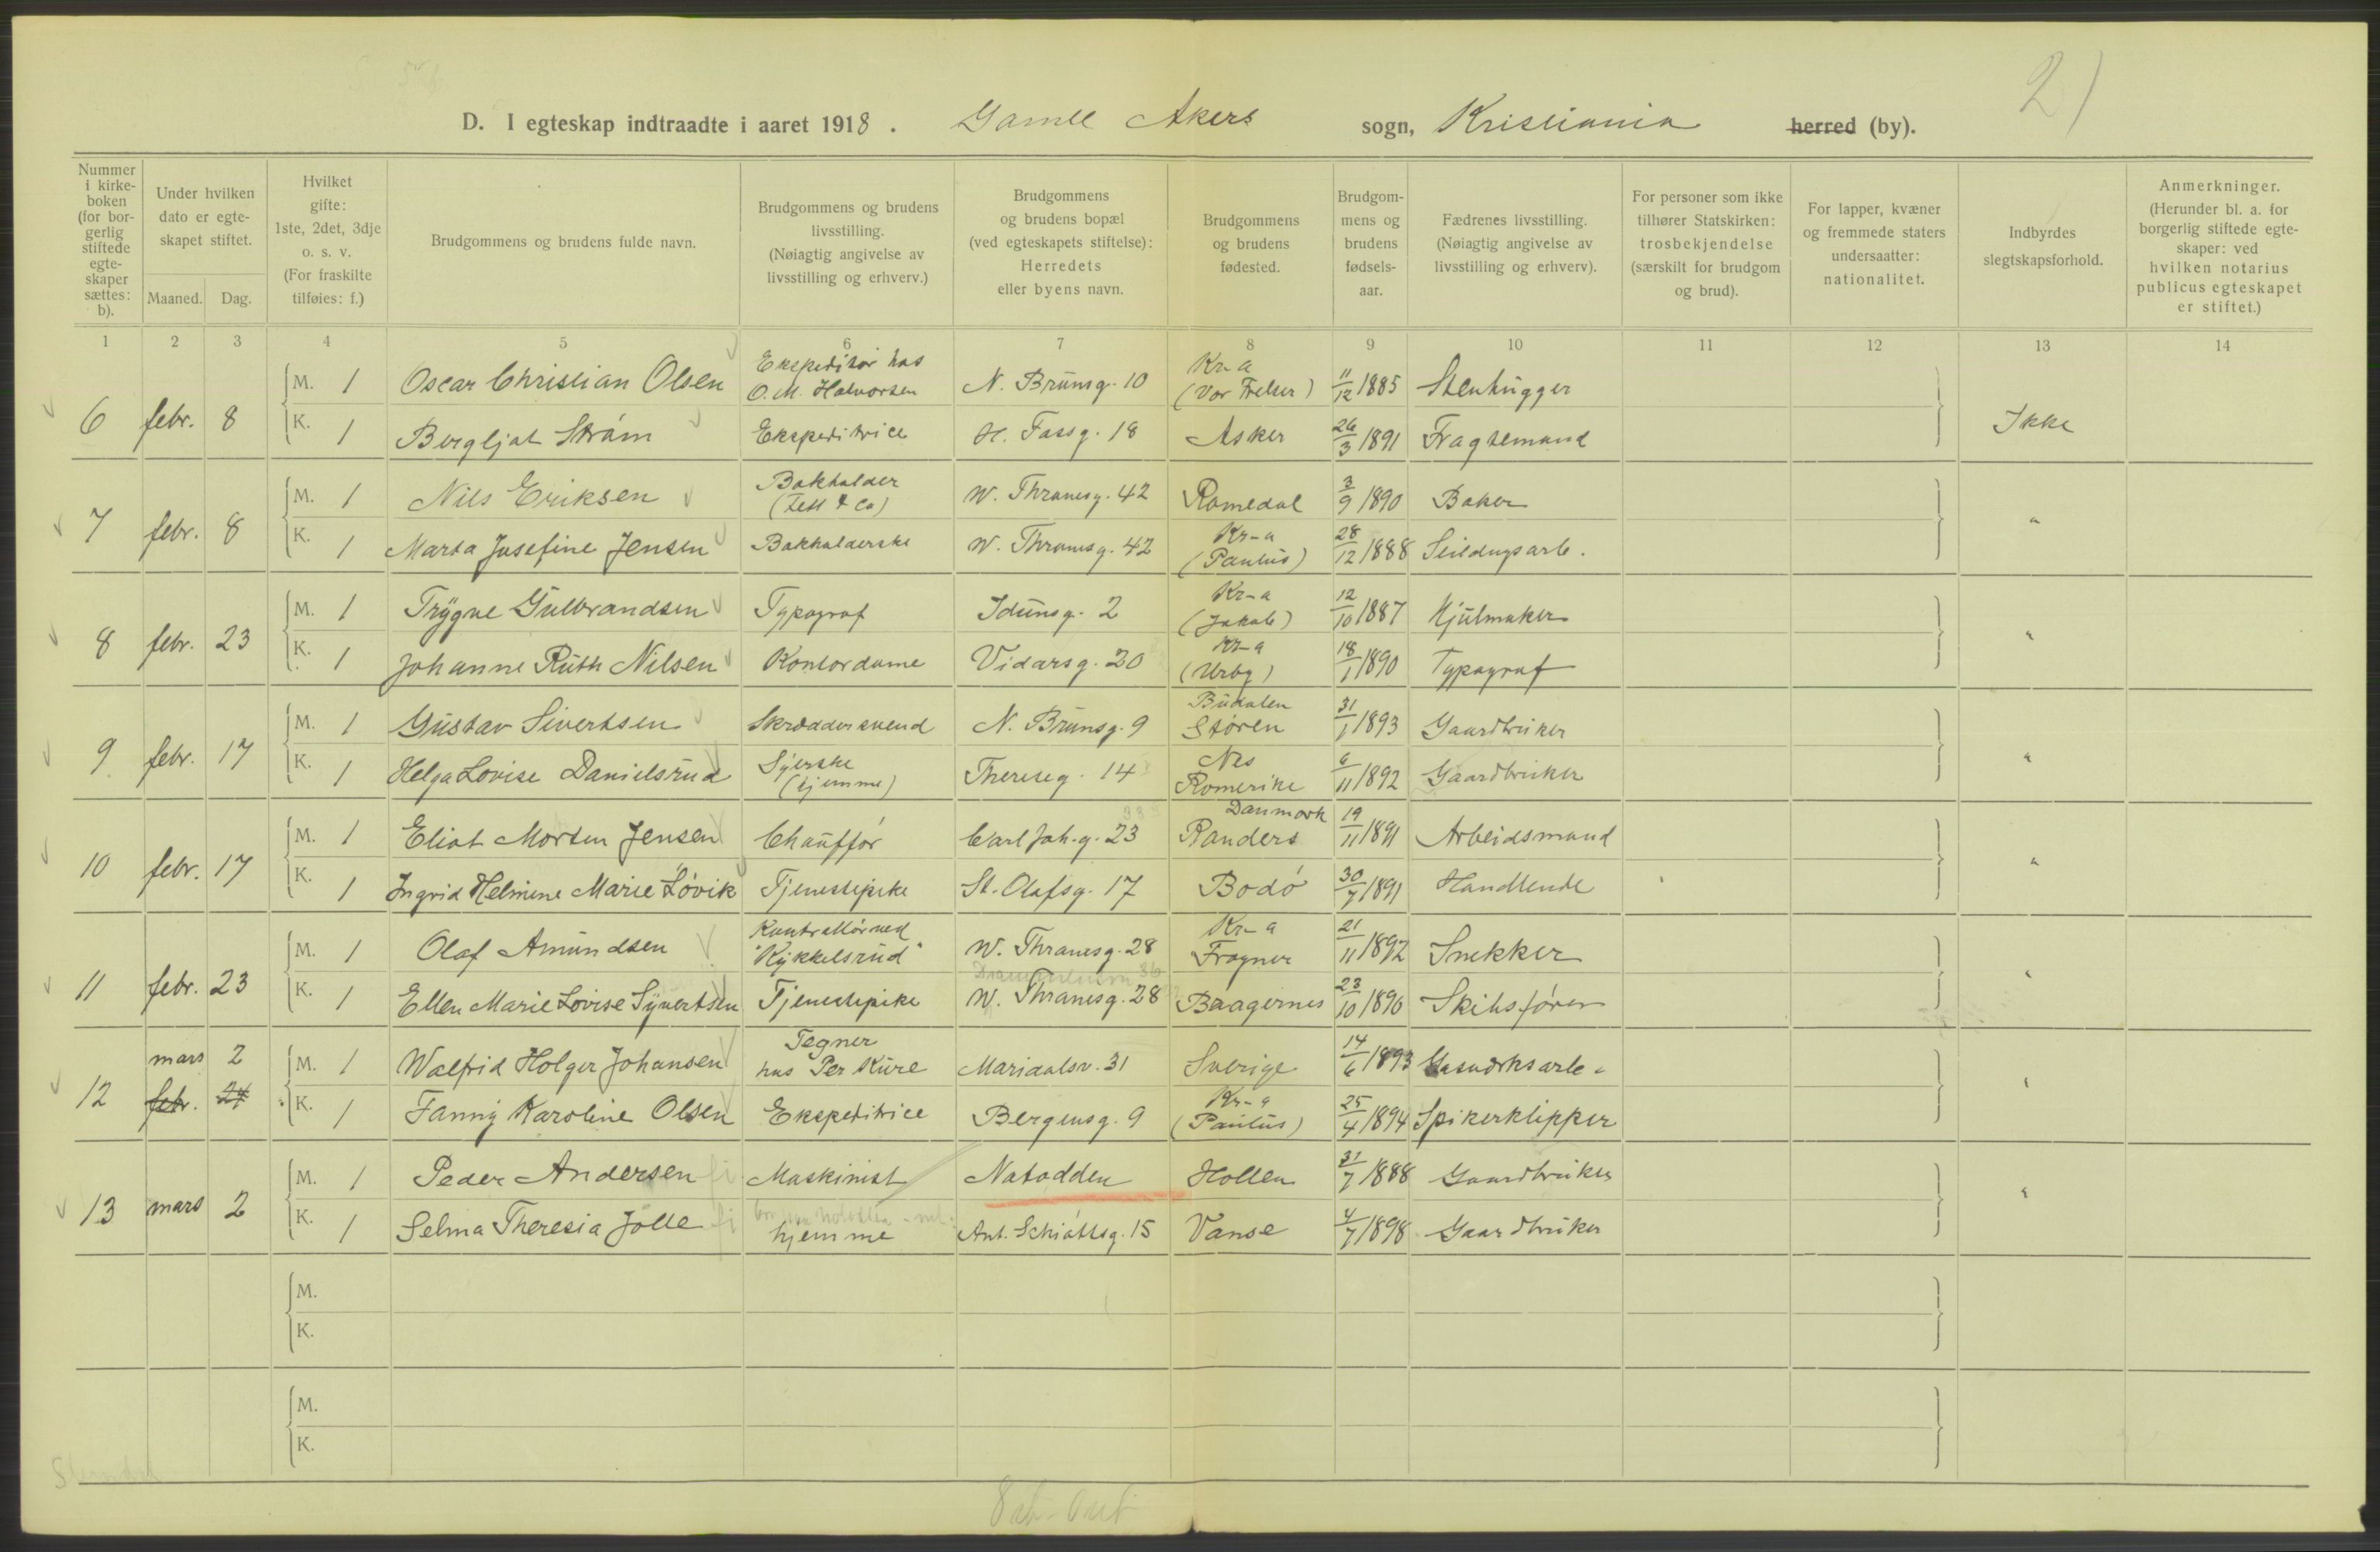 21
D. I egteskap indtraadte i aaret 1918. Gamle Akers sogn, Kristiania herred (by).
Nummer i kirke-boken (for bor-gerlig stiftede egte-skaper sættes: b).
Under hvilken dato er egte-skapet stiftet.
Maaned. Dag.
Hvilket gifte: 1ste, 2det, 3dje o. s. v. (For fraskilte tilføies: f.)
Brudgommens og brudens fulde navn.
Brudgommens og brudens livsstilling. (Nøiagtig angivelse av livsstilling og erhverv.)
Brudgommens og brudens bopæl (ved egteskapets stiftelse): Herredets eller byens navn.
Brudgommens og brudens fødested.
Brudgom-mens og brudens fødsels-aar.
Fædrenes livsstilling. (Nøiagtig angivelse av livsstilling og erhverv).
For personer som ikke tilhører Statskirken: trosbekjendelse (særskilt for brudgom og brud).
For lapper, kvæner og fremmede staters undersaatter: nationalitet.
Indbyrdes slegtskapsforhold.
Anmerkninger. (Herunder bl. a. for borgerlig stiftede egte-skaper: ved hvilken notarius publicus egteskapet er stiftet.)
1 2 3 4 5 6 7 8 9 10 11 12 13 14
6 febr. 8 M. 1 Oscar Christian Olsen Ekspeditør hos O. M. Halvorsen N. Brunsg. 10 Kr-a (Vor Frelser) 11/12 1885 Stenhugger Ikke
K. 1 Bergljot Strøm Ekspeditrice H. Fossg. 18 Asker 26/3 1891 Fragtemand
7 febr. 8 M. 1 Nils Eriksen Bokholder (Tell & Co) W. Thranesg. 42 Romedal 3/9 1890 Baker "
K. 1 Marta Josefine Jensen Bokholderske W. Thranesg. 42 Kr-a (Paulus) 28/12 1888 Seildugsarb.
8 febr. 23 M. 1 Trygve Gulbrandsen Typograf Idunsg. 2 Kr-a (Jakob) 12/10 1887 Hjulmaker "
K. 1 Johanne Ruth Nilsen Kontordame Vidarsg. 20 Kr-a (Urbg) 18/1 1890 Typograf
9 febr. 17 M. 1 Gustav Sivertsen Skrædder svend N. Brunsg. 9 Budalen Støren 31/1 1893 Gaardbruker "
K. 1 Helga Lovise Danielsrud Syerske (hjemme) Thereseg. 14 Nes Romerike 6/11 1892 Gaardbruker
10 febr. 17 M. 1 Eliot Morten Jensen Chauffør Carl Joh. g. 23 Danmark Randers 19/11 1891 Arbeidsmand "
K. 1 Ingrid Helmine Marie Løvik Tjenestepike St. Olafsg. 17 Bodø 30/7 1891 Handlende
11 febr. 23 M. 1 Olaf Amundsen Kontrollør ved "Kykkelsrud" W. Thranesg. 28 Kr-a Frogner 21/11 1892 Snekker "
K. 1 Ellen Marie Lovise Syvertsen Tjenestepike W. Thranesg. 28 Bragernes 23/10 1890 Skibsfører
12 mars 2 febr. 24 M. 1 Walfrid Holger Johansen Tegner hos Per Kure Maridalsv. 31 Sverige 14/6 1893 Gasverksarb. "
K. 1 Fanny Karoline Olsen Ekspeditrice Bergensg. 9 Kr-a (Paulus) 25/4 1894 Spikerklipper
13 mars 2 M. 1 Peder Andersen Maskinist Notodden Hollen 31/7 1888 Gaardbruker "
K. 1 Selma Theresia Jölle hjemme Ant. Schiøttsg. 15 Vanse 4/7 1898 Gaardbruker
M.
K.
M.
K.